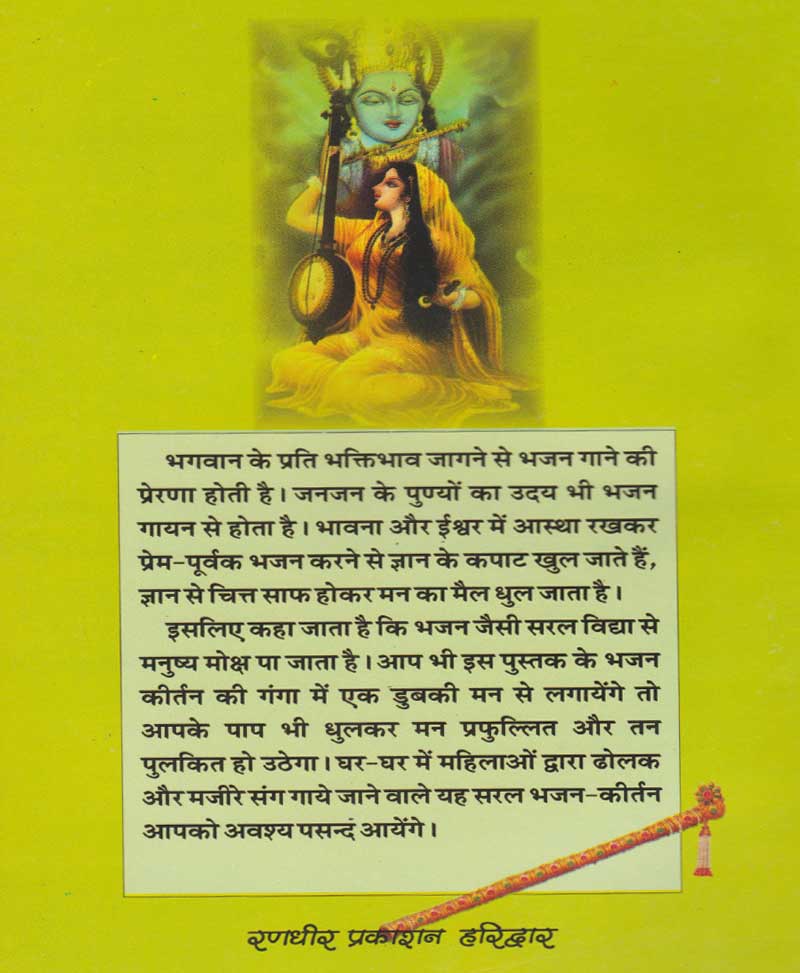 भगवान के प्रति भक्तिभाव जागने से भजन गाने की
प्रेरणा होती है। जनजन के पुण्यों का उदय भी भजन
गायन से होता है। भावना और ईश्वर में आस्था रखकर
प्रेम-पूर्वक भजन करने से ज्ञान के कपाट खुल जाते हैं,
ज्ञान से चित्त साफ होकर मन का मैल धुल जाता है।
इसलिए कहा जाता है कि भजन जैसी सरल विद्या से
मनुष्य मोक्ष पा जाता है। आप भी इस पुस्तक के भजन
कीर्तन की गंगा में एक डुबकी मन से लगायेंगे तो
आपके पाप भी धुलकर मन प्रफुल्लित और तन
पुलकित हो उठेगा। घर-घर में महिलाओं द्वारा ढोलक
और मजीरे संग गाये जाने वाले यह सरल भजन-कीर्तन
आपको अवश्य पसन्दं आयेंगे।
रणधीर प्रकाशन हरिद्वार